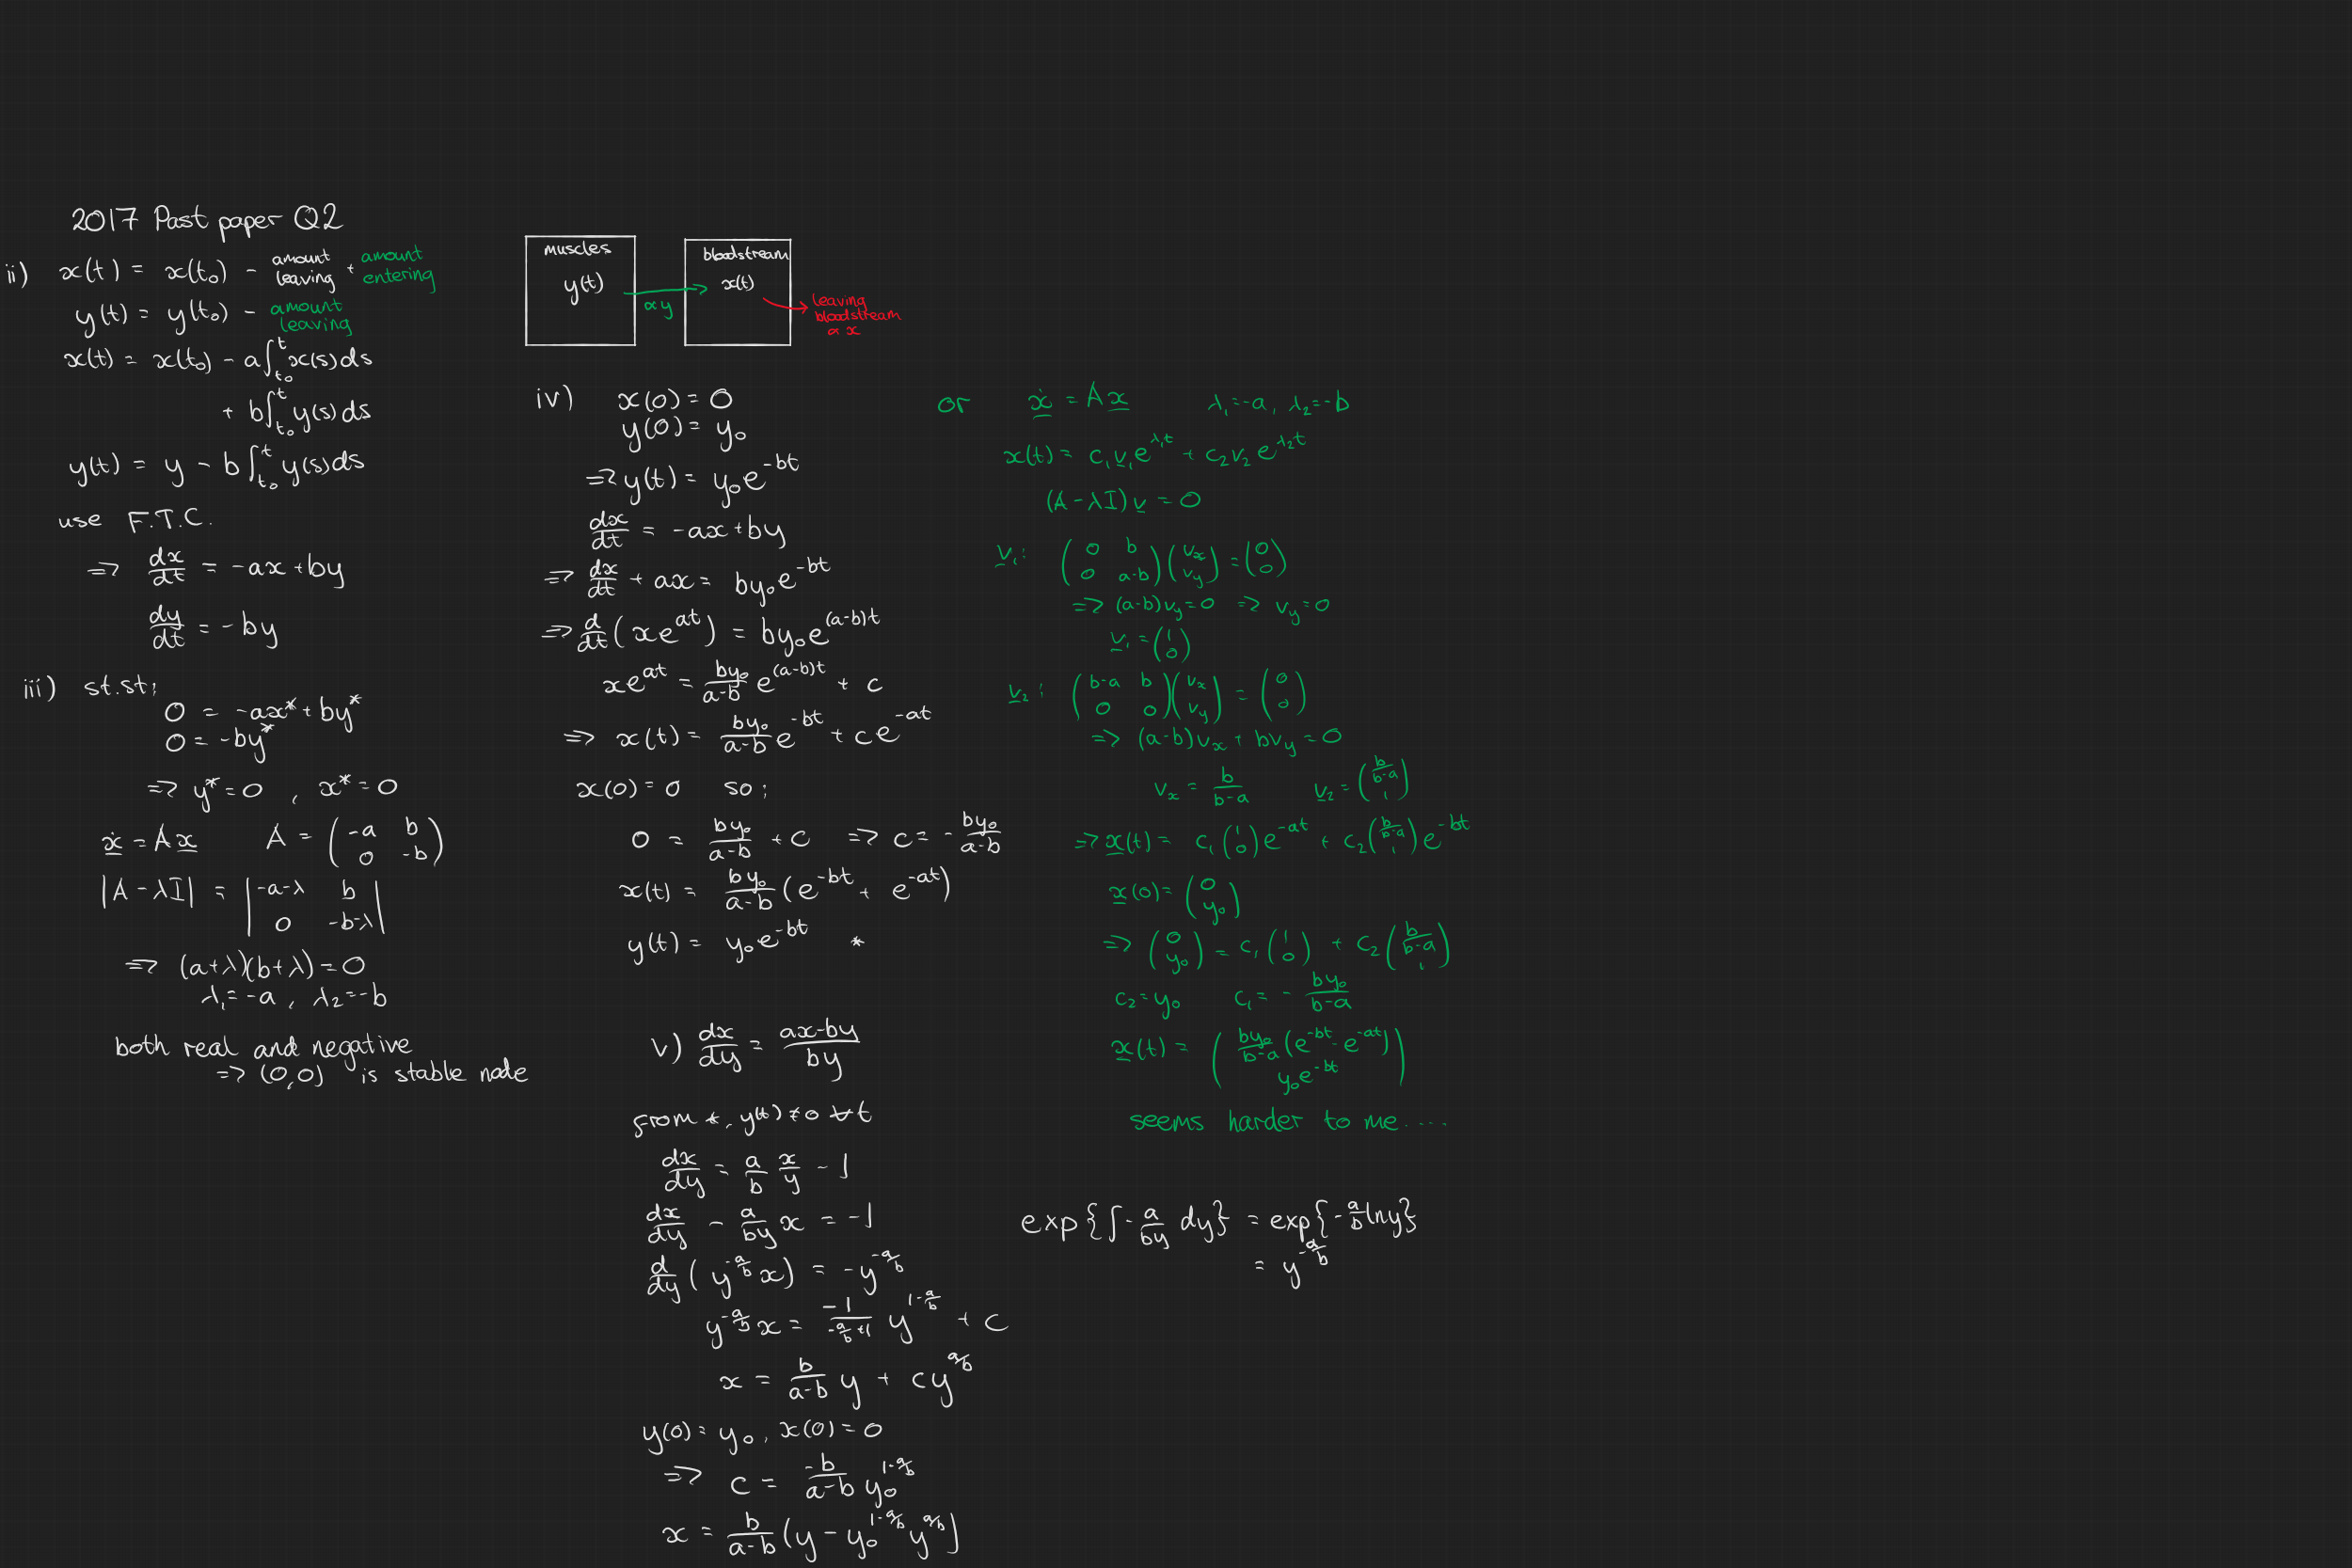 2017 Past paper Q2
ii) x(t) = x(t₀) - amount leaving + amount entering
y(t) = y(t₀) - amount leaving
x(t) = x(t₀) - a∫_{t₀}^{t} x(s)ds
+ b∫_{t₀}^{t} y(s)ds
y(t) = y - b∫_{t₀}^{t} y(s)ds
use F.T.C.
=> dx/dt = -ax+by
dy/dt = -by
iii) st.st;
0 = -ax* + by*
0 = -by*
=> y*=0 , x*=0
ẋ = Ax A = (-a b; 0 -b)
|A - λI| = |-a-λ b; 0 -b-λ|
=> (a+λ)(b+λ)=0
λ₁=-a , λ₂=-b
both real and negative
=> (0,0) is stable node
muscles
y(t)
∝ y
bloodstream
x(t)
leaving
bloodstream
∝ x
iv) x(0)=0
y(0)=y₀
=> y(t) = y₀e^{-bt}
dx/dt = -ax+by
=> dx/dt + ax = by₀e^{-bt}
=> d/dt(xe^{at}) = by₀e^{(a-b)t}
xe^{at} = by₀/(a-b) e^{(a-b)t} + c
=> x(t) = by₀/(a-b) e^{-bt} + ce^{-at}
x(0)=0 so;
0 = by₀/(a-b) + c => c = - by₀/(a-b)
x(t) = by₀/(a-b) (e^{-bt} + e^{-at})
y(t) = y₀e^{-bt} *
v) dx/dy = (ax-by)/by
from *, y(t) ≠ 0 ∀t
dx/dy = a/b x/y - 1
dx/dy - a/by x = -1
d/dy (y^{-a/b} x) = -y^{-a/b}
y^{-a/b} x = -1/(-a/b+1) y^{1-a/b} + c
x = b/(a-b) y + cy^{a/b}
y(0)=y₀, x(0)=0
=> c = -b/(a-b) y₀^{1-a/b}
x = b/(a-b) (y - y₀^{1-a/b} y^{a/b})
or ẋ = Ax λ₁=-a, λ₂=-b
x(t) = c₁v₁e^{λ₁t} + c₂v₂e^{λ₂t}
(A - λI)v = 0
v₁: (0 b; 0 a-b)(vₓ; v_y) = (0; 0)
=> (a-b)v_y=0 => v_y=0
v₁ = (1; 0)
v₂: (b-a b; 0 0)(vₓ; v_y) = (0; 0)
=> (a-b)vₓ + bv_y = 0
vₓ = b/(b-a) v₂ = (b/(b-a); 1)
=> x(t) = c₁(1; 0)e^{-at} + c₂(b/(b-a); 1)e^{-bt}
x(0) = (0; y₀)
=> (0; y₀) = c₁(1; 0) + c₂(b/(b-a); 1)
c₂=y₀ c₁ = - by₀/(b-a)
x(t) = (by₀/(b-a) (e^{-bt} - e^{-at}); y₀e^{-bt})
seems harder to me....
exp{∫ - a/by dy} = exp{-a/b lny}
= y^{-a/b}